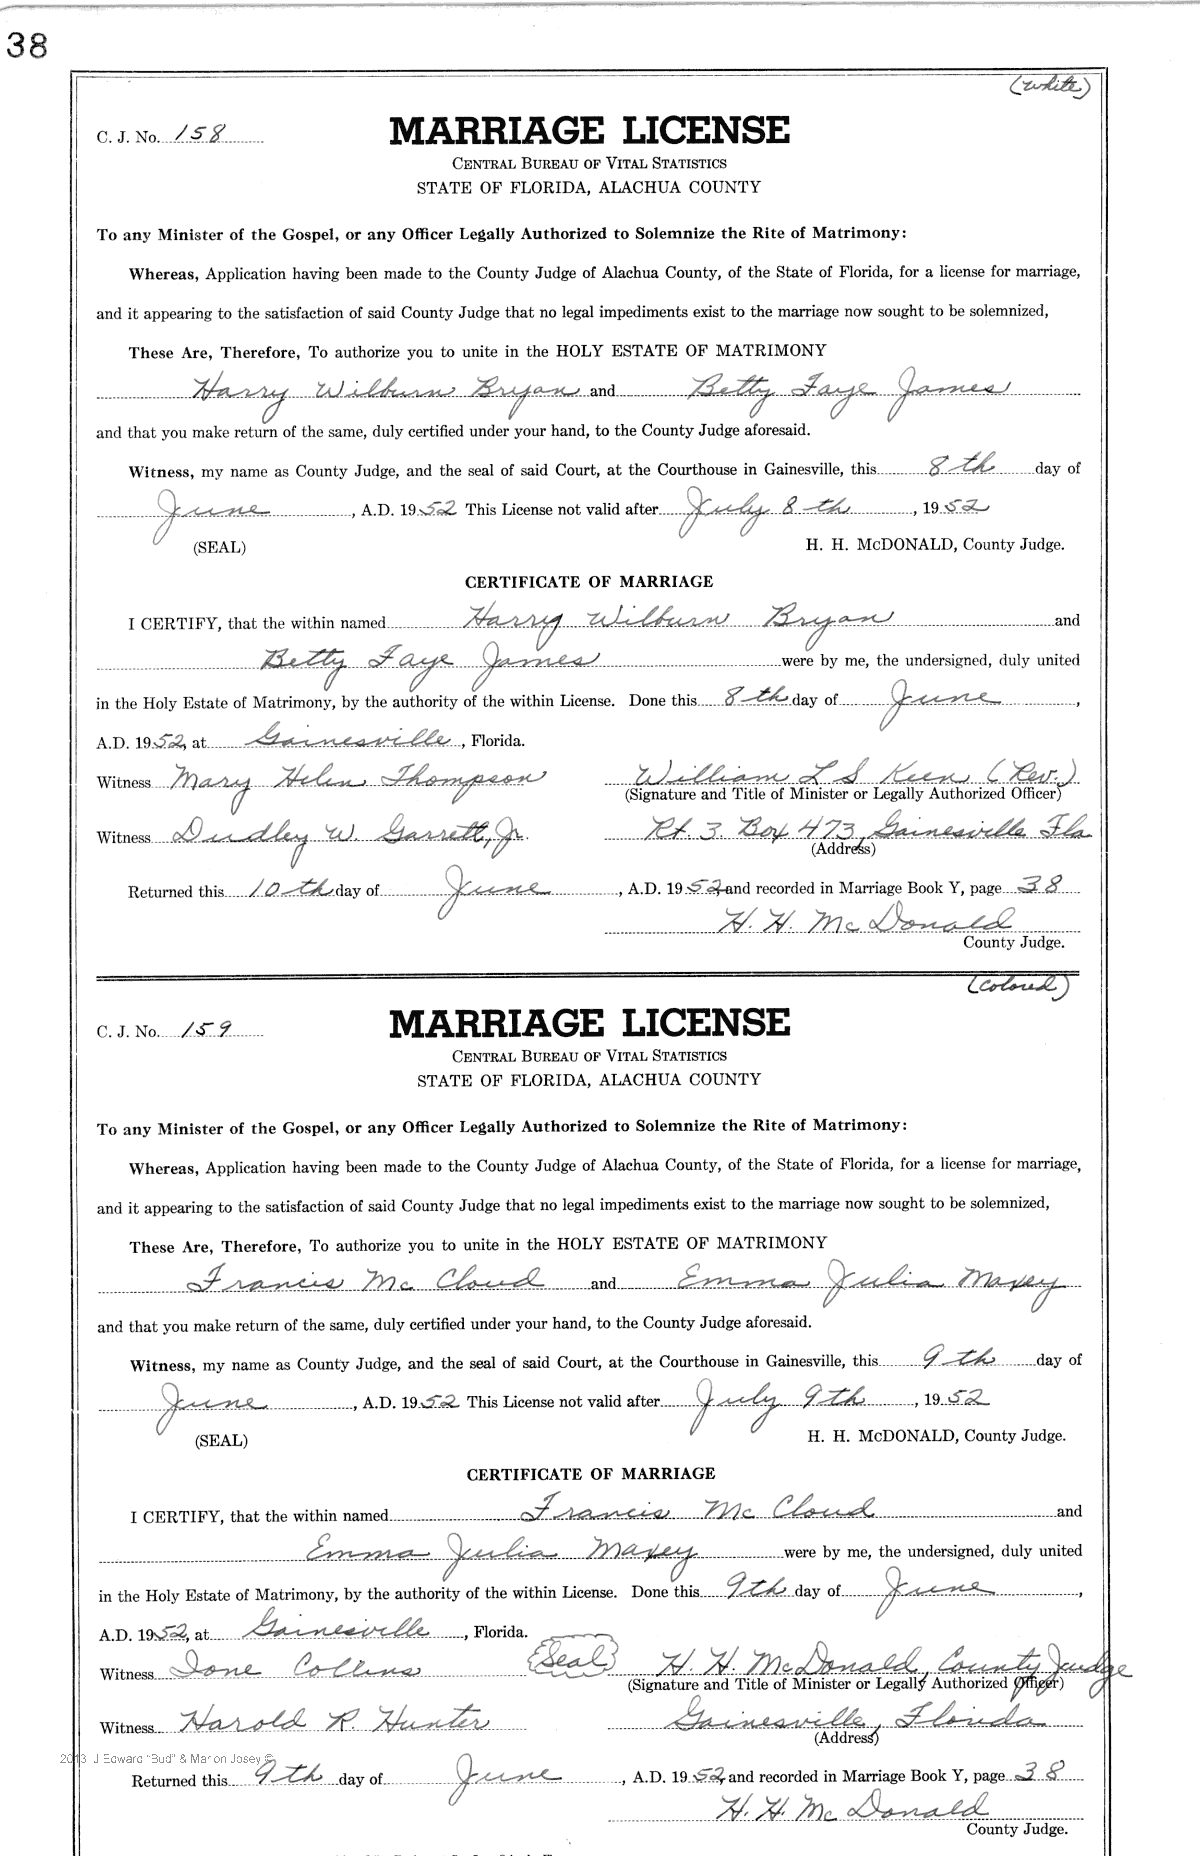 38
(white)
C. J. No. 158
MARRIAGE LICENSE
CENTRAL BUREAU OF VITAL STATISTICS
STATE OF FLORIDA, ALACHUA COUNTY
To any Minister of the Gospel, or any Officer Legally Authorized to Solemnize the Rite of Matrimony:
Whereas, Application having been made to the County Judge of Alachua County, of the State of Florida, for a license for marriage,
and it appearing to the satisfaction of said County Judge that no legal impediments exist to the marriage now sought to be solemnized,
These Are, Therefore, To authorize you to unite in the HOLY ESTATE OF MATRIMONY
Harry Wilburn Bryan and Betty Faye James
and that you make return of the same, duly certified under your hand, to the County Judge aforesaid.
Witness, my name as County Judge, and the seal of said Court, at the Courthouse in Gainesville, this 8th day of
June, A.D. 1952 This License not valid after July 8th, 1952
(SEAL) H. H. McDONALD, County Judge.
CERTIFICATE OF MARRIAGE
I CERTIFY, that the within named Harry Wilburn Bryan and
Betty Faye James were by me, the undersigned, duly united
in the Holy Estate of Matrimony, by the authority of the within License. Done this 8th day of June,
A.D. 1952, at Gainesville, Florida.
Witness Mary Helen Thompson William L S Keen (Rev.)
(Signature and Title of Minister or Legally Authorized Officer)
Witness Dudley W. Garrett, Jr. Rt. 3 Box 473, Gainesville Fla
(Address)
Returned this 10th day of June, A.D. 1952, and recorded in Marriage Book Y, page 38
H. H. McDonald
County Judge.
(Colored)
C. J. No. 159
MARRIAGE LICENSE
CENTRAL BUREAU OF VITAL STATISTICS
STATE OF FLORIDA, ALACHUA COUNTY
To any Minister of the Gospel, or any Officer Legally Authorized to Solemnize the Rite of Matrimony:
Whereas, Application having been made to the County Judge of Alachua County, of the State of Florida, for a license for marriage,
and it appearing to the satisfaction of said County Judge that no legal impediments exist to the marriage now sought to be solemnized,
These Are, Therefore, To authorize you to unite in the HOLY ESTATE OF MATRIMONY
Francis McCloud and Emma Julia Maxey
and that you make return of the same, duly certified under your hand, to the County Judge aforesaid.
Witness, my name as County Judge, and the seal of said Court, at the Courthouse in Gainesville, this 9th day of
June, A.D. 1952 This License not valid after July 9th, 1952
(SEAL) H. H. McDONALD, County Judge.
CERTIFICATE OF MARRIAGE
I CERTIFY, that the within named Francis McCloud and
Emma Julia Maxey were by me, the undersigned, duly united
in the Holy Estate of Matrimony, by the authority of the within License. Done this 9th day of June,
A.D. 1952, at Gainesville, Florida.
Witness Ione Collins Seal H. H. McDonald, County Judge
(Signature and Title of Minister or Legally Authorized Officer)
Witness Harold R. Hunter Gainesville, Florida
(Address)
2013 J Edward "Bud" & Marion Josey ©
Returned this 9th day of June, A.D. 1952, and recorded in Marriage Book Y, page 38
H. H. McDonald
County Judge.